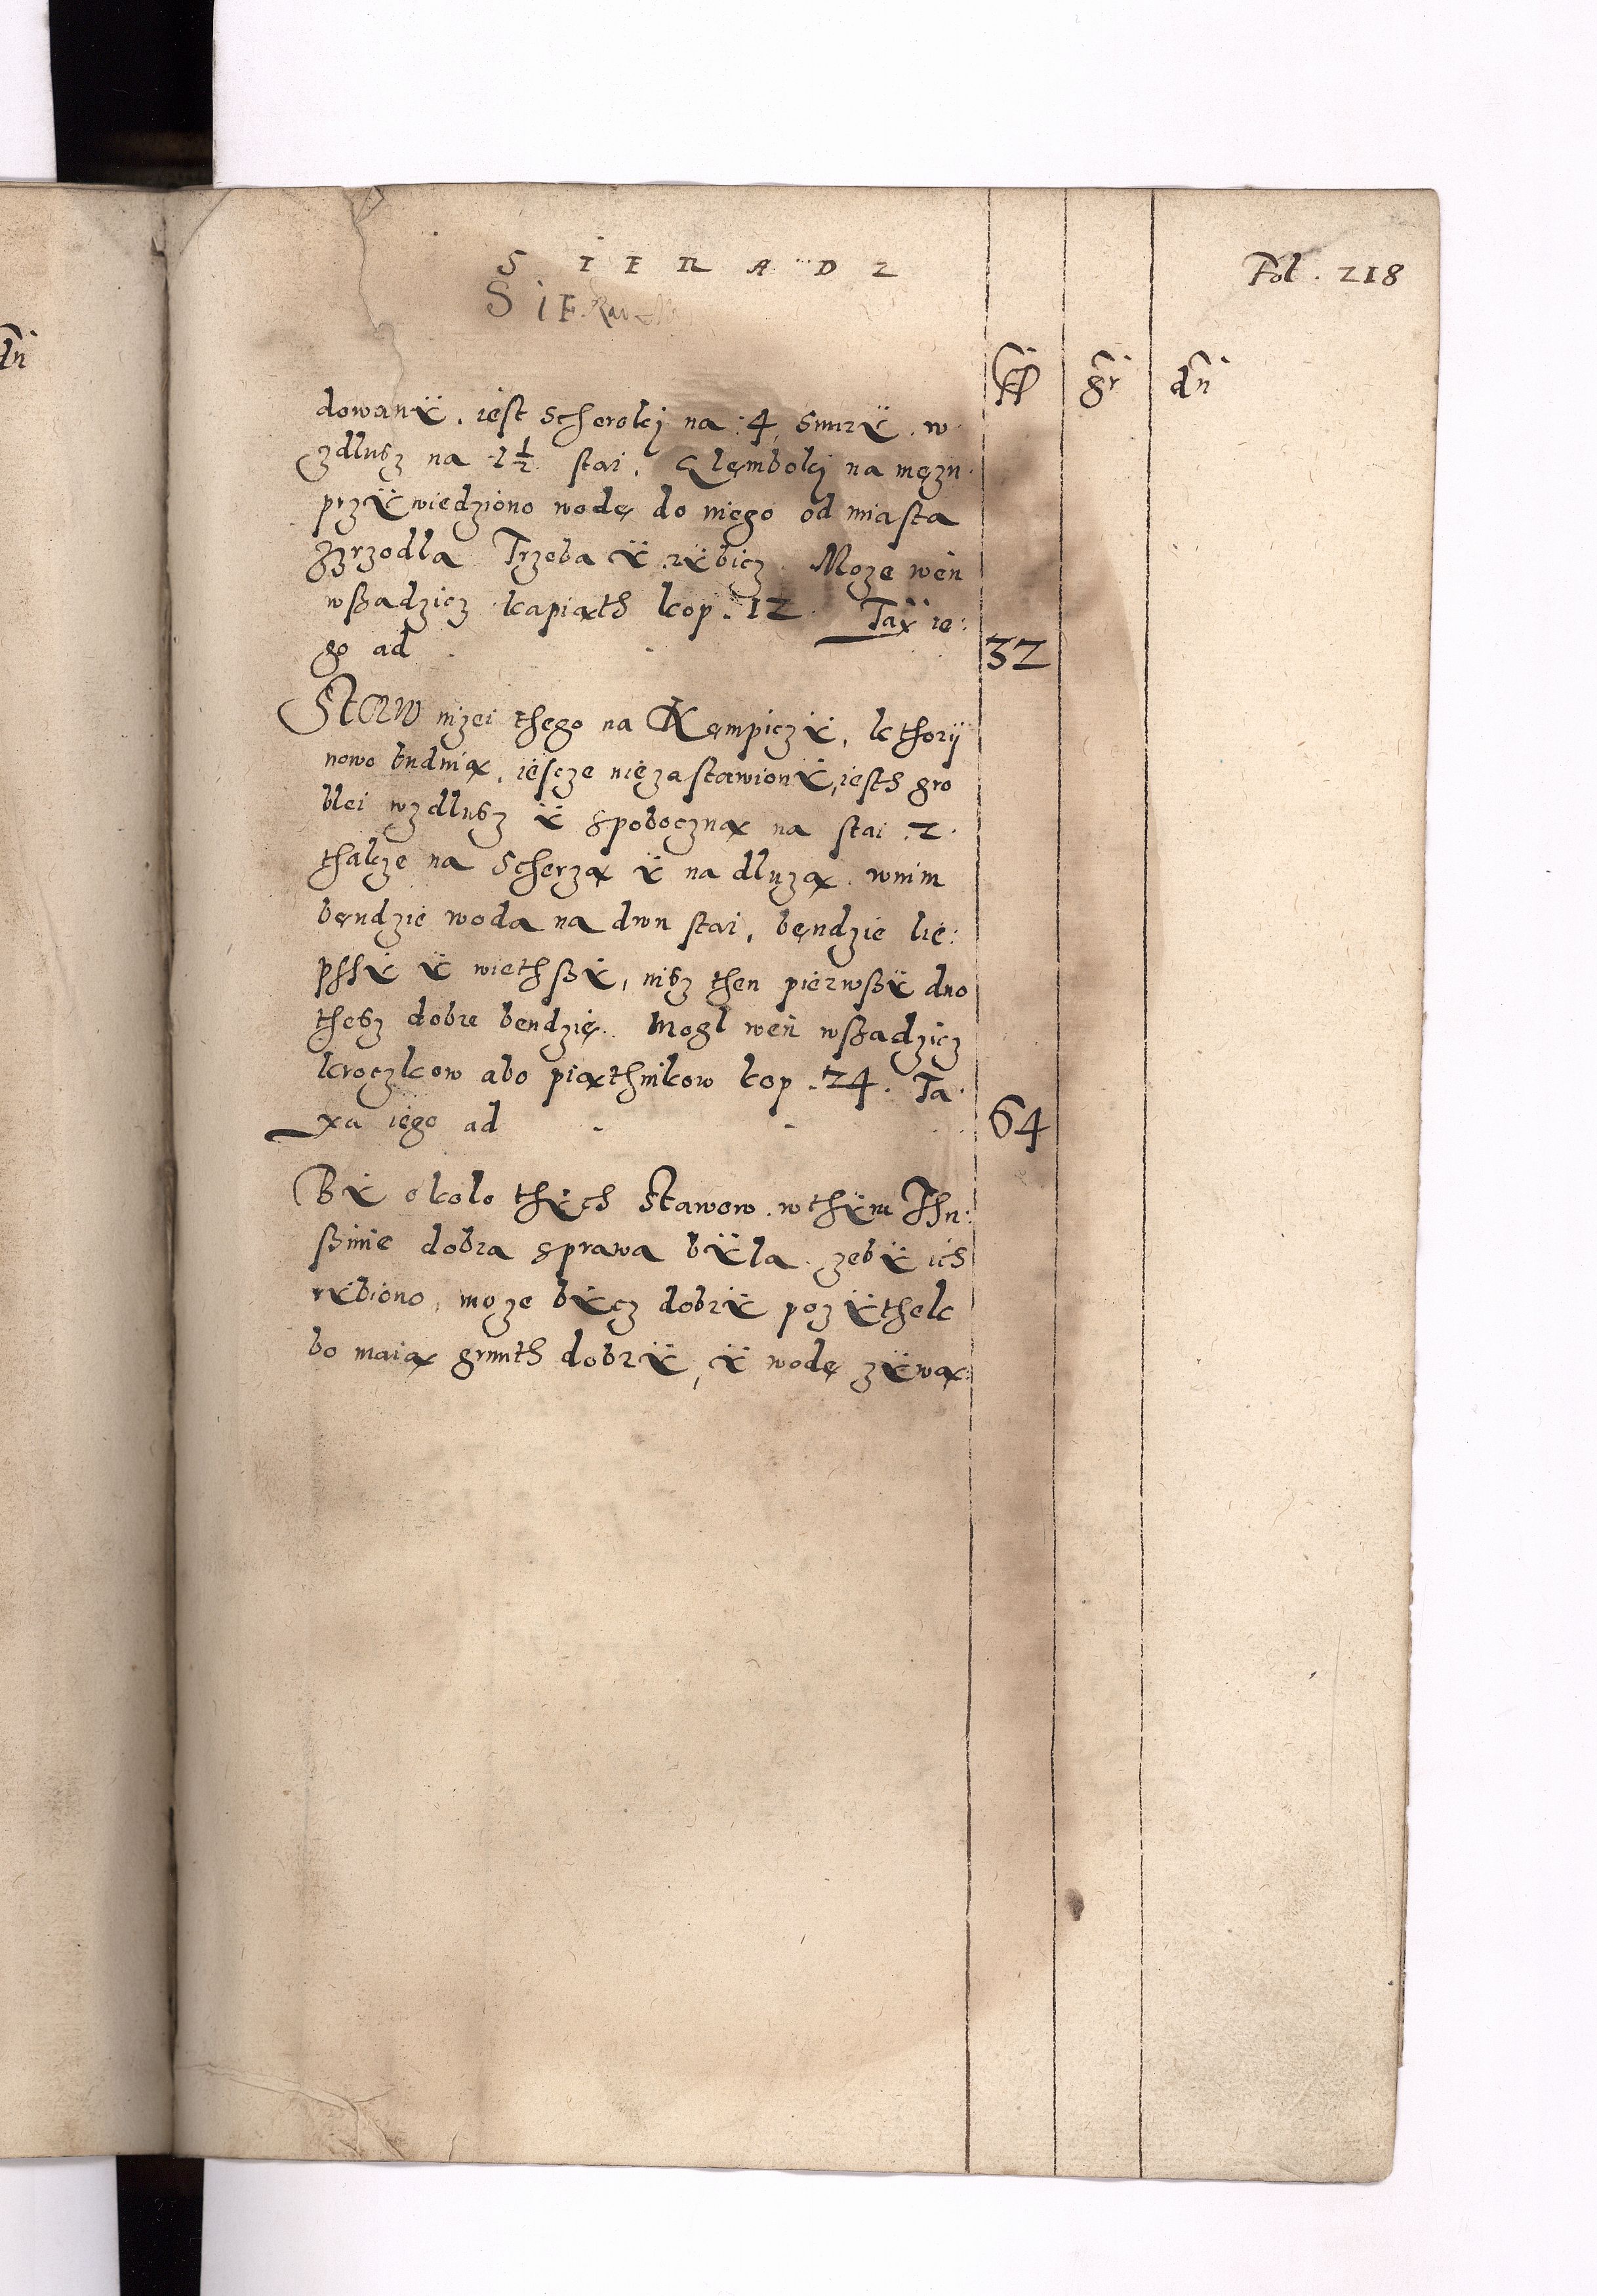 S I E R A D Z
Fol. 218
SIE
dn̄
kp̄ gr̄ dn̄
dowanÿ, iest scherokj na .4. snurÿ. w
zdlusz na 1½ stai. Glęmbokj na męzu.
przÿwiedziono wodę do niego od miasta
zzrzodla Trzeba ÿ rÿbicz. Moze wen
wßadzicz kapiąth kop. 12. Tax ie:
go ad 32
Staw nizei thego na Kęmpiczÿ, kthorij
nowo budnią, iescze niezastawionÿ, iesth gro
blei wzdlusz ÿ spoboczną na stai .2.
thakze na scherzą ÿ na dluzą. wnim
będzie woda na dwu stai, będzie lie:
pssÿ ÿ wiethßÿ, nisz then pierwßÿ dno
thesz dobre bendzię. Mogl wen wßadzicz
kroczkow abo piąthnikow kop. 24. Ta
xa iego ad 64
Bÿ okolo thÿch stawow. wthÿm Thu:
ßinie dobra sprawa bÿla. zebÿ ich
rÿbiono, moze bÿcz dobrÿ pozÿthek
bo maią grunth dobrÿ, ÿ wodę zÿwą: